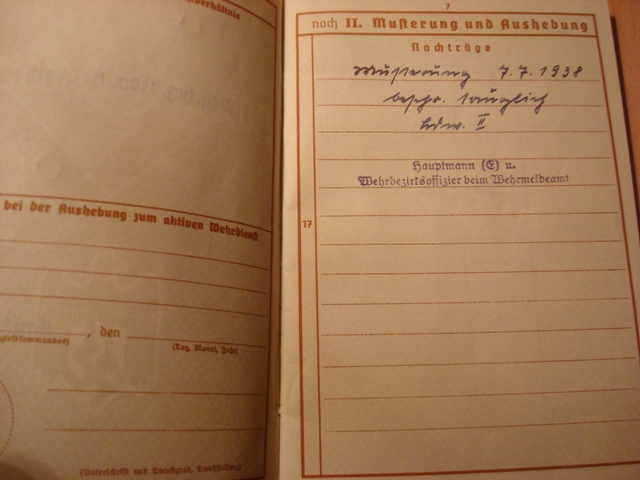 verhältnis
bei der Aushebung zum aktiven Wehrdienst
, den
(Tag, Monat, Jahr)
(Unterschrift und Dienstgrad, Dienststellung)
7
noch II. Musterung und Aushebung
Nachträge
Musterung 7.7.1938
beschr. tauglich
Ldw. II
Hauptmann (E) u.
Wehrbezirksoffizier beim Wehrmeldeamt
17